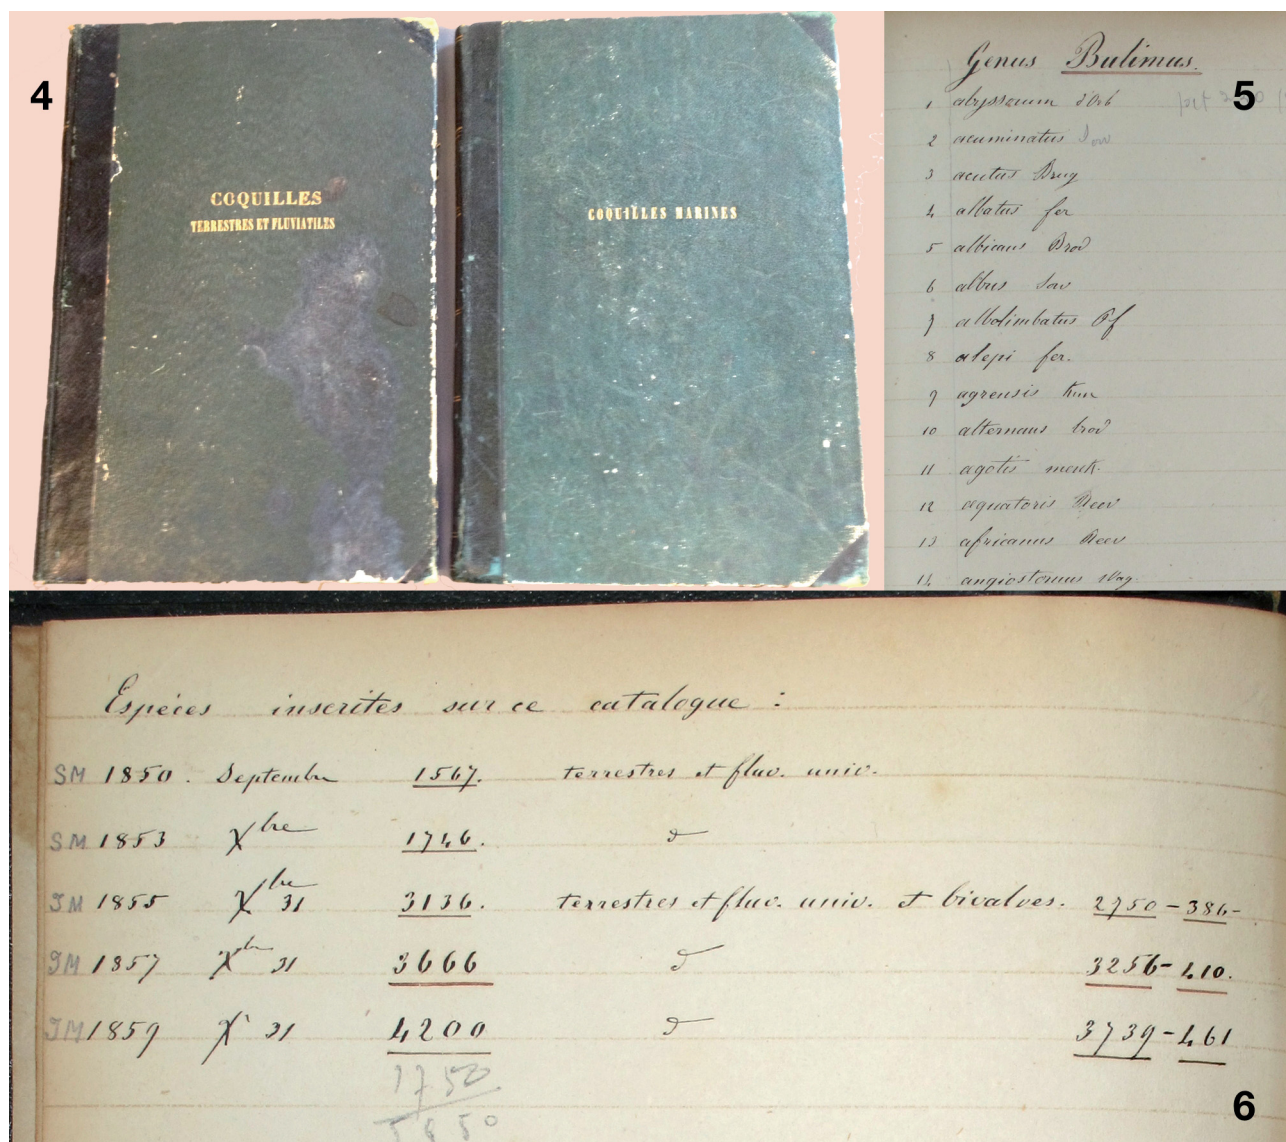 4
COQUILLES
TERRESTRES ET FLUVIATILES
COQUILLES MARINES
5
Genus Bulimus.
1 abyssorum d'Orb
2 acuminatus Sow
3 acutus Brug
4 albatus fer
5 albicans Brod
6 albus Sow
7 albolimbatus Pf
8 alepi fer.
9 agrensis
10 alternans brod
11 agotis menk.
12 aequatoris Reev
13 africanus Reev
14 angiostomus Wag.
Espéces inscrites sur ce catalogue :
SM 1850. Septembre 1567. terrestres et fluv. univ.
SM 1853 Xbre 1746. d
JM 1855 Xbre 31 3136. terrestres et fluv. univ. et bivalves. 2750 - 386 -
JM 1857 Xbre 31 3666 d 3256 - 410.
JM 1859 X 31 4200 d 3739 - 461
1750
6